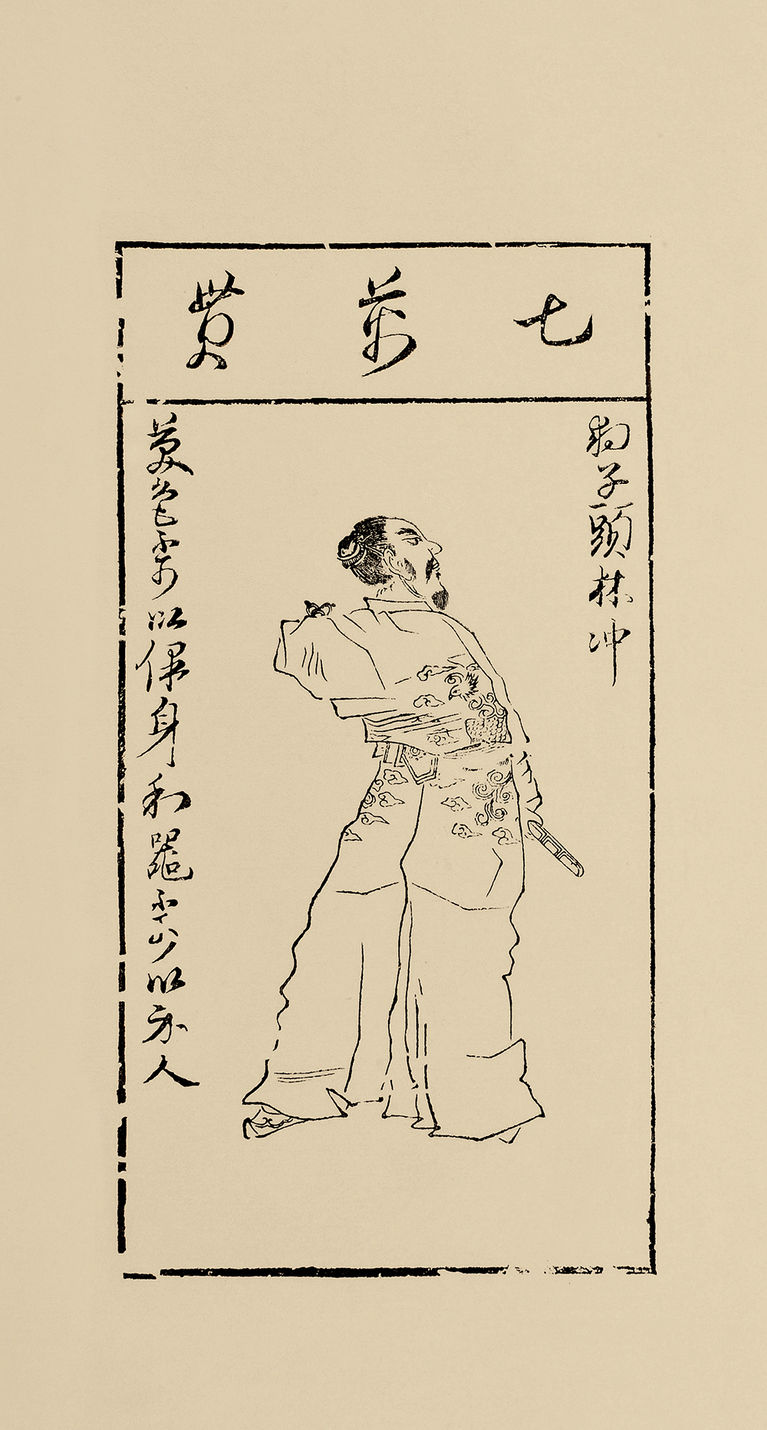 七萬貫
豹子頭林冲
美色不可以保身利器不可以示人